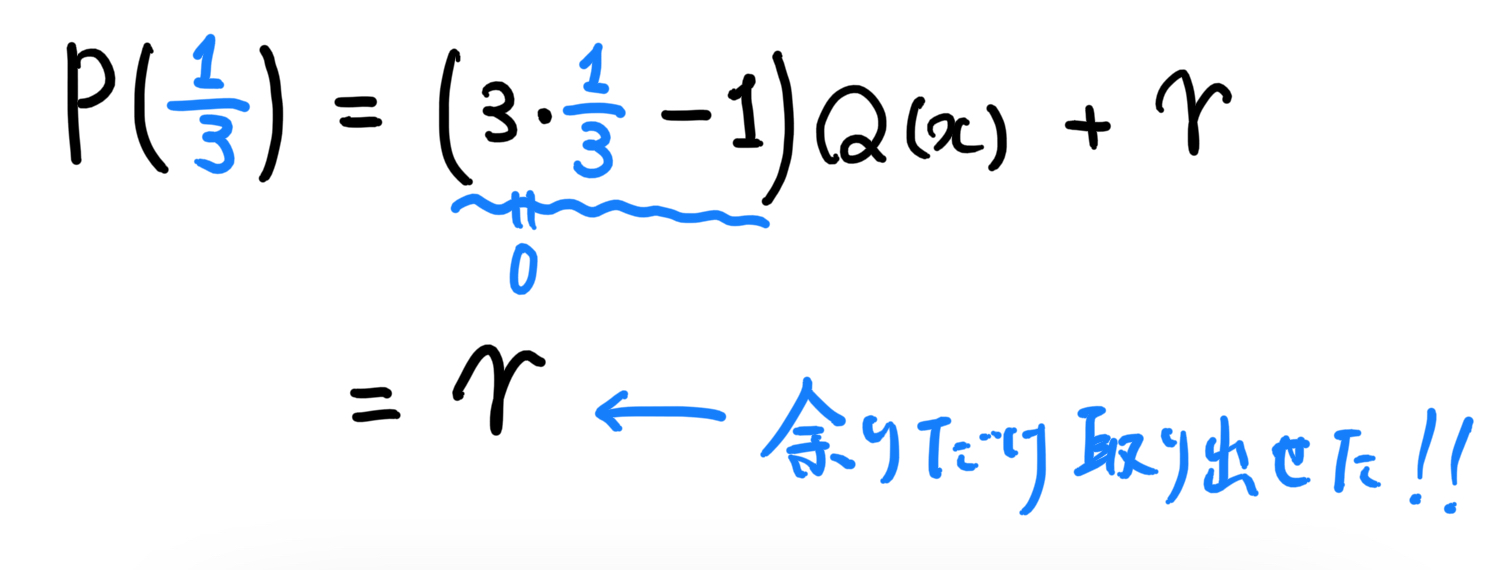 P(1/3) = (3・1/3 − 1)Q(x) + r
0
= r ← 余りだけ取り出せた!!